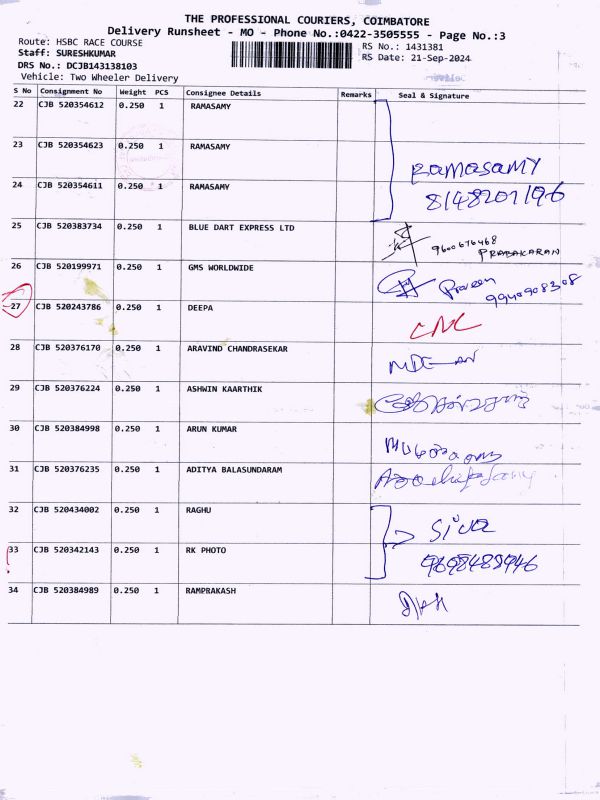 THE PROFESSIONAL COURIERS, COIMBATORE
Delivery Runsheet - MO - Phone No.:0422-3505555 - Page No.:3
Route: HSBC RACE COURSE
RS No.: 1431381
Staff: SURESHKUMAR
RS Date: 21-Sep-2024
DRS No.: DCJB143138103
Vehicle: Two Wheeler Delivery
S No Consignment No Weight PCS Consignee Details Remarks Seal & Signature
22 CJB 520354612 0.250 1 RAMASAMY
23 CJB 520354623 0.250 1 RAMASAMY
Ramasamy
24 CJB 520354611 0.250 1 RAMASAMY
8148201196
25 CJB 520383734 0.250 1 BLUE DART EXPRESS LTD
9600676468
PRABAKARAN
26 CJB 520199971 0.250 1 GMS WORLDWIDE
Praveen
9940908308
27 CJB 520243786 0.250 1 DEEPA
CNC
28 CJB 520376170 0.250 1 ARAVIND CHANDRASEKAR
29 CJB 520376224 0.250 1 ASHWIN KAARTHIK
30 CJB 520384998 0.250 1 ARUN KUMAR
31 CJB 520376235 0.250 1 ADITYA BALASUNDARAM
32 CJB 520434002 0.250 1 RAGHU
Siva
33 CJB 520342143 0.250 1 RK PHOTO
9698489946
34 CJB 520384989 0.250 1 RAMPRAKASH